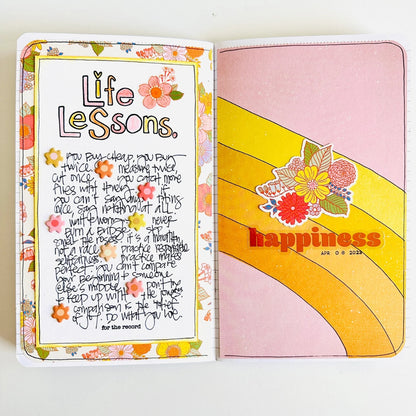 Life
Lessons.
you buy cheap, you buy
twice. measure twice,
cut once. you catch more
flies with honey. if
you can't say anything
nice, say nothing at all.
waste not, want not. never
burn a bridge. stop
smell the roses. it's a marathon,
not a race. practice
selfcare. practice makes
perfect. you can't compare
your beginning to someone
else's middle. don't
to keep up with the
comparison is the thief
of joy. Do what you love
for the record
happiness
APR 08 2023